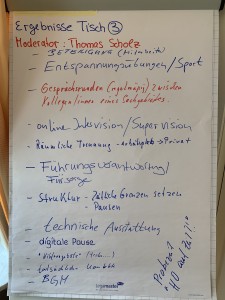 Ergebnisse Tisch 3
Moderator: Thomas Scholz
- Entspannungsübungen/Sport
- Gesprächsrunden (regelmäßig) zwischen
Kollegen/innen eines Sachgebietes.
- online Intervision/Supervision
- Räumliche Trennung - Arbeitsplatz Privat
- Führungsverantwortung/
Fürsorge
- Struktur - Zeitliche Grenzen setzen
- Pausen
- technische Ausstattung
- digitale Pause
- BGM